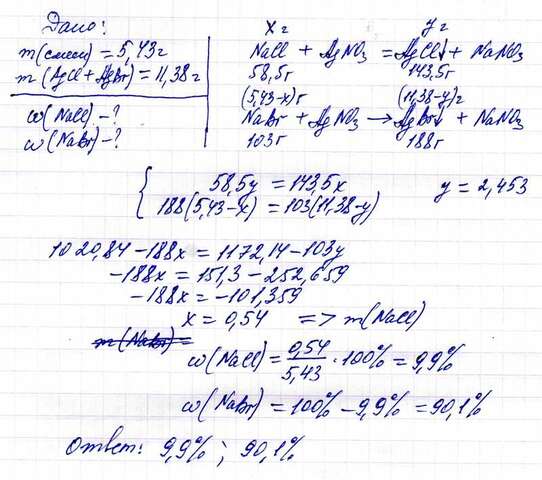 Дано:
m(смеси) = 5,43г
m(AgCl + AgBr) = 11,38г
ω(NaCl) - ?
ω(NaBr) - ?
x г y г
NaCl + AgNO3 = AgCl↓ + NaNO3
58,5г 143,5г
(5,43-x)г (11,38-y)г
NaBr + AgNO3 → AgBr↓ + NaNO3
103г 188г
58,5y = 143,5x y = 2,453
188(5,43-x) = 103(11,38-y)
1020,84 - 188x = 1172,14 - 103y
-188x = 151,3 - 252,659
-188x = -101,359
x = 0,54 => m(NaCl)
m(NaBr) =
ω(NaCl) = 0,54/5,43 · 100% = 9,9%
ω(NaBr) = 100% - 9,9% = 90,1%
Ответ: 9,9% ; 90,1%